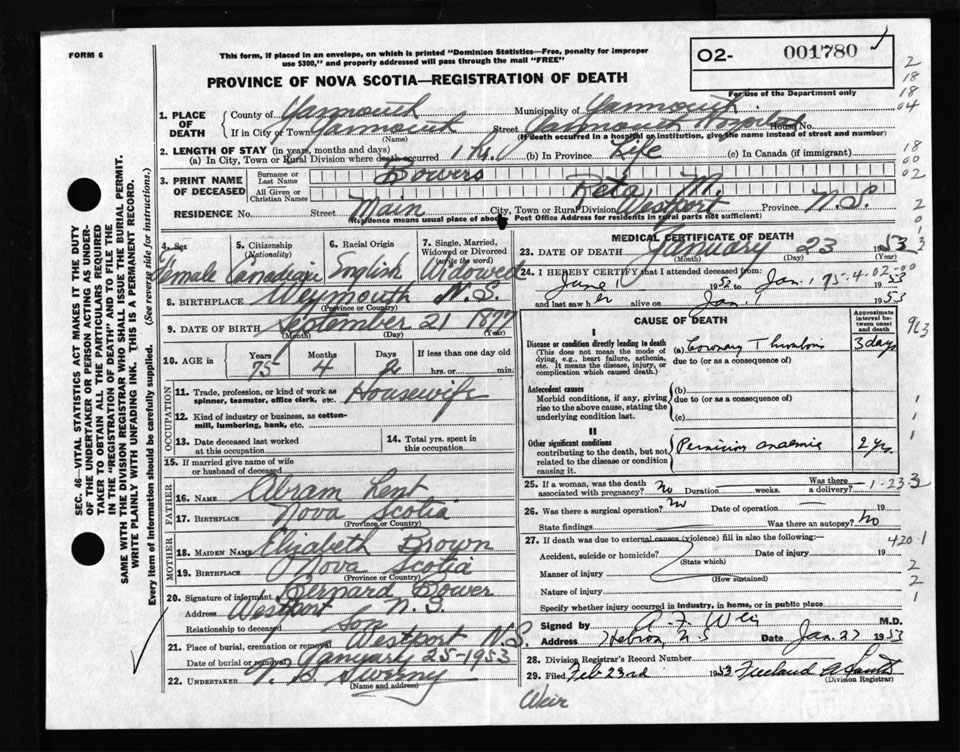 FORM 6
This form, if placed in an envelope, on which is printed "Dominion Statistics—Free, penalty for improper
use $300," and properly addressed will pass through the mail "FREE"
PROVINCE OF NOVA SCOTIA—REGISTRATION OF DEATH
O2- 001780
For use of the Department only
2
18
18
04
18
00
02
2
0
1
3
SEC. 46—VITAL STATISTICS ACT MAKES IT THE DUTY
OF THE UNDERTAKER OR PERSON ACTING AS UNDER-
TAKER TO OBTAIN ALL THE PARTICULARS REQUIRED
IN THE "REGISTRATION OF DEATH" AND TO FILE THE
SAME WITH THE DIVISION REGISTRAR WHO SHALL ISSUE THE BURIAL PERMIT.
WRITE PLAINLY WITH UNFADING INK. THIS IS A PERMANENT RECORD.
Every item of information should be carefully supplied. (See reverse side for instructions.)
1. PLACE OF DEATH
County of Yarmouth Municipality of Yarmouth
If in City or Town Yarmouth Street Yarmouth Hospital House No.
(Name) (If death occurred in a hospital or institution, give the name instead of street and number)
2. LENGTH OF STAY (in years, months and days)
(a) In City, Town or Rural Division where death occurred (b) In Province Life (c) In Canada (if immigrant)
3. PRINT NAME OF DECEASED
Surname or Last Name Bowers
All Given or Christian Names Reta M.
RESIDENCE No. Street Main City, Town or Rural Division Westport Province N.S.
(Residence means usual place of abode. Post Office Address for residents in rural parts not sufficient)
4. Sex Female
5. Citizenship (Nationality) Canadian
6. Racial Origin English
7. Single, Married, Widowed or Divorced (write the word) Widowed
8. BIRTHPLACE Weymouth N.S.
(Province or Country)
9. DATE OF BIRTH September 21 1877
(Month) (Day) (Year)
10. AGE in Years 75 Months 4 Days 2 If less than one day old hrs. or min.
OCCUPATION
11. Trade, profession, or kind of work as spinner, teamster, office clerk, etc. Housewife
12. Kind of industry or business, as cotton-mill, lumbering, bank, etc.
13. Date deceased last worked at this occupation
14. Total yrs. spent in this occupation
15. If married give name of wife or husband of deceased
FATHER
16. NAME Abram Lent
17. BIRTHPLACE Nova Scotia
(Province or Country)
MOTHER
18. MAIDEN NAME Elizabeth Brown
19. BIRTHPLACE Nova Scotia
(Province or Country)
20. Signature of informant Bernard Bower
Address Westport N.S.
Relationship to deceased Son
21. Place of burial, cremation or removal Westport N.S.
Date of burial or removal January 25-1953
22. UNDERTAKER Sweeny
(Name and address)
MEDICAL CERTIFICATE OF DEATH
23. DATE OF DEATH January 23 1953
(Month) (Day)
24. I HEREBY CERTIFY that I attended deceased from:
June 1952 to Jan. 1953
and last saw her alive on Jan. 1953
CAUSE OF DEATH
Approximate interval between onset and death
I
Disease or condition directly leading to death
(This does not mean the mode of dying, e.g., heart failure, asthenia, etc. It means the disease, injury, or complication which caused death.)
(a) Coronary Thrombosis 3 days
due to (or as a consequence of)
Antecedent causes
Morbid conditions, if any, giving rise to the above cause, stating the underlying condition last.
(b)
due to (or as a consequence of)
(c)
II
Other significant conditions
contributing to the death, but not related to the disease or condition causing it.
Pernicious anaemia 2 yrs.
25. If a woman, was the death associated with pregnancy? No Duration weeks. Was there a delivery?
1-23-3
26. Was there a surgical operation? No Date of operation 19
State findings Was there an autopsy? No
27. If death was due to external causes (violence) fill in also the following:—
420-1
Accident, suicide or homicide? Date of injury 19
(State which)
Manner of injury
(How sustained)
Nature of injury
Specify whether injury occurred in industry, in home, or in public place
Signed by A. F. Weir M.D.
Address Hebron, N.S Date Jan. 27 1953
28. Division Registrar's Record Number
29. Filed Feb 23rd 1953 Freeland A Smith
(Division Registrar)
Weir